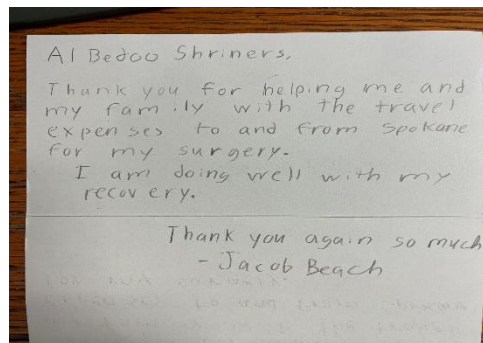 Al Bedoo Shriners,
Thank you for helping me and
my family with the travel
expenses to and from Spokane
for my surgery.
I am doing well with my
recovery.
Thank you again so much
- Jacob Beach